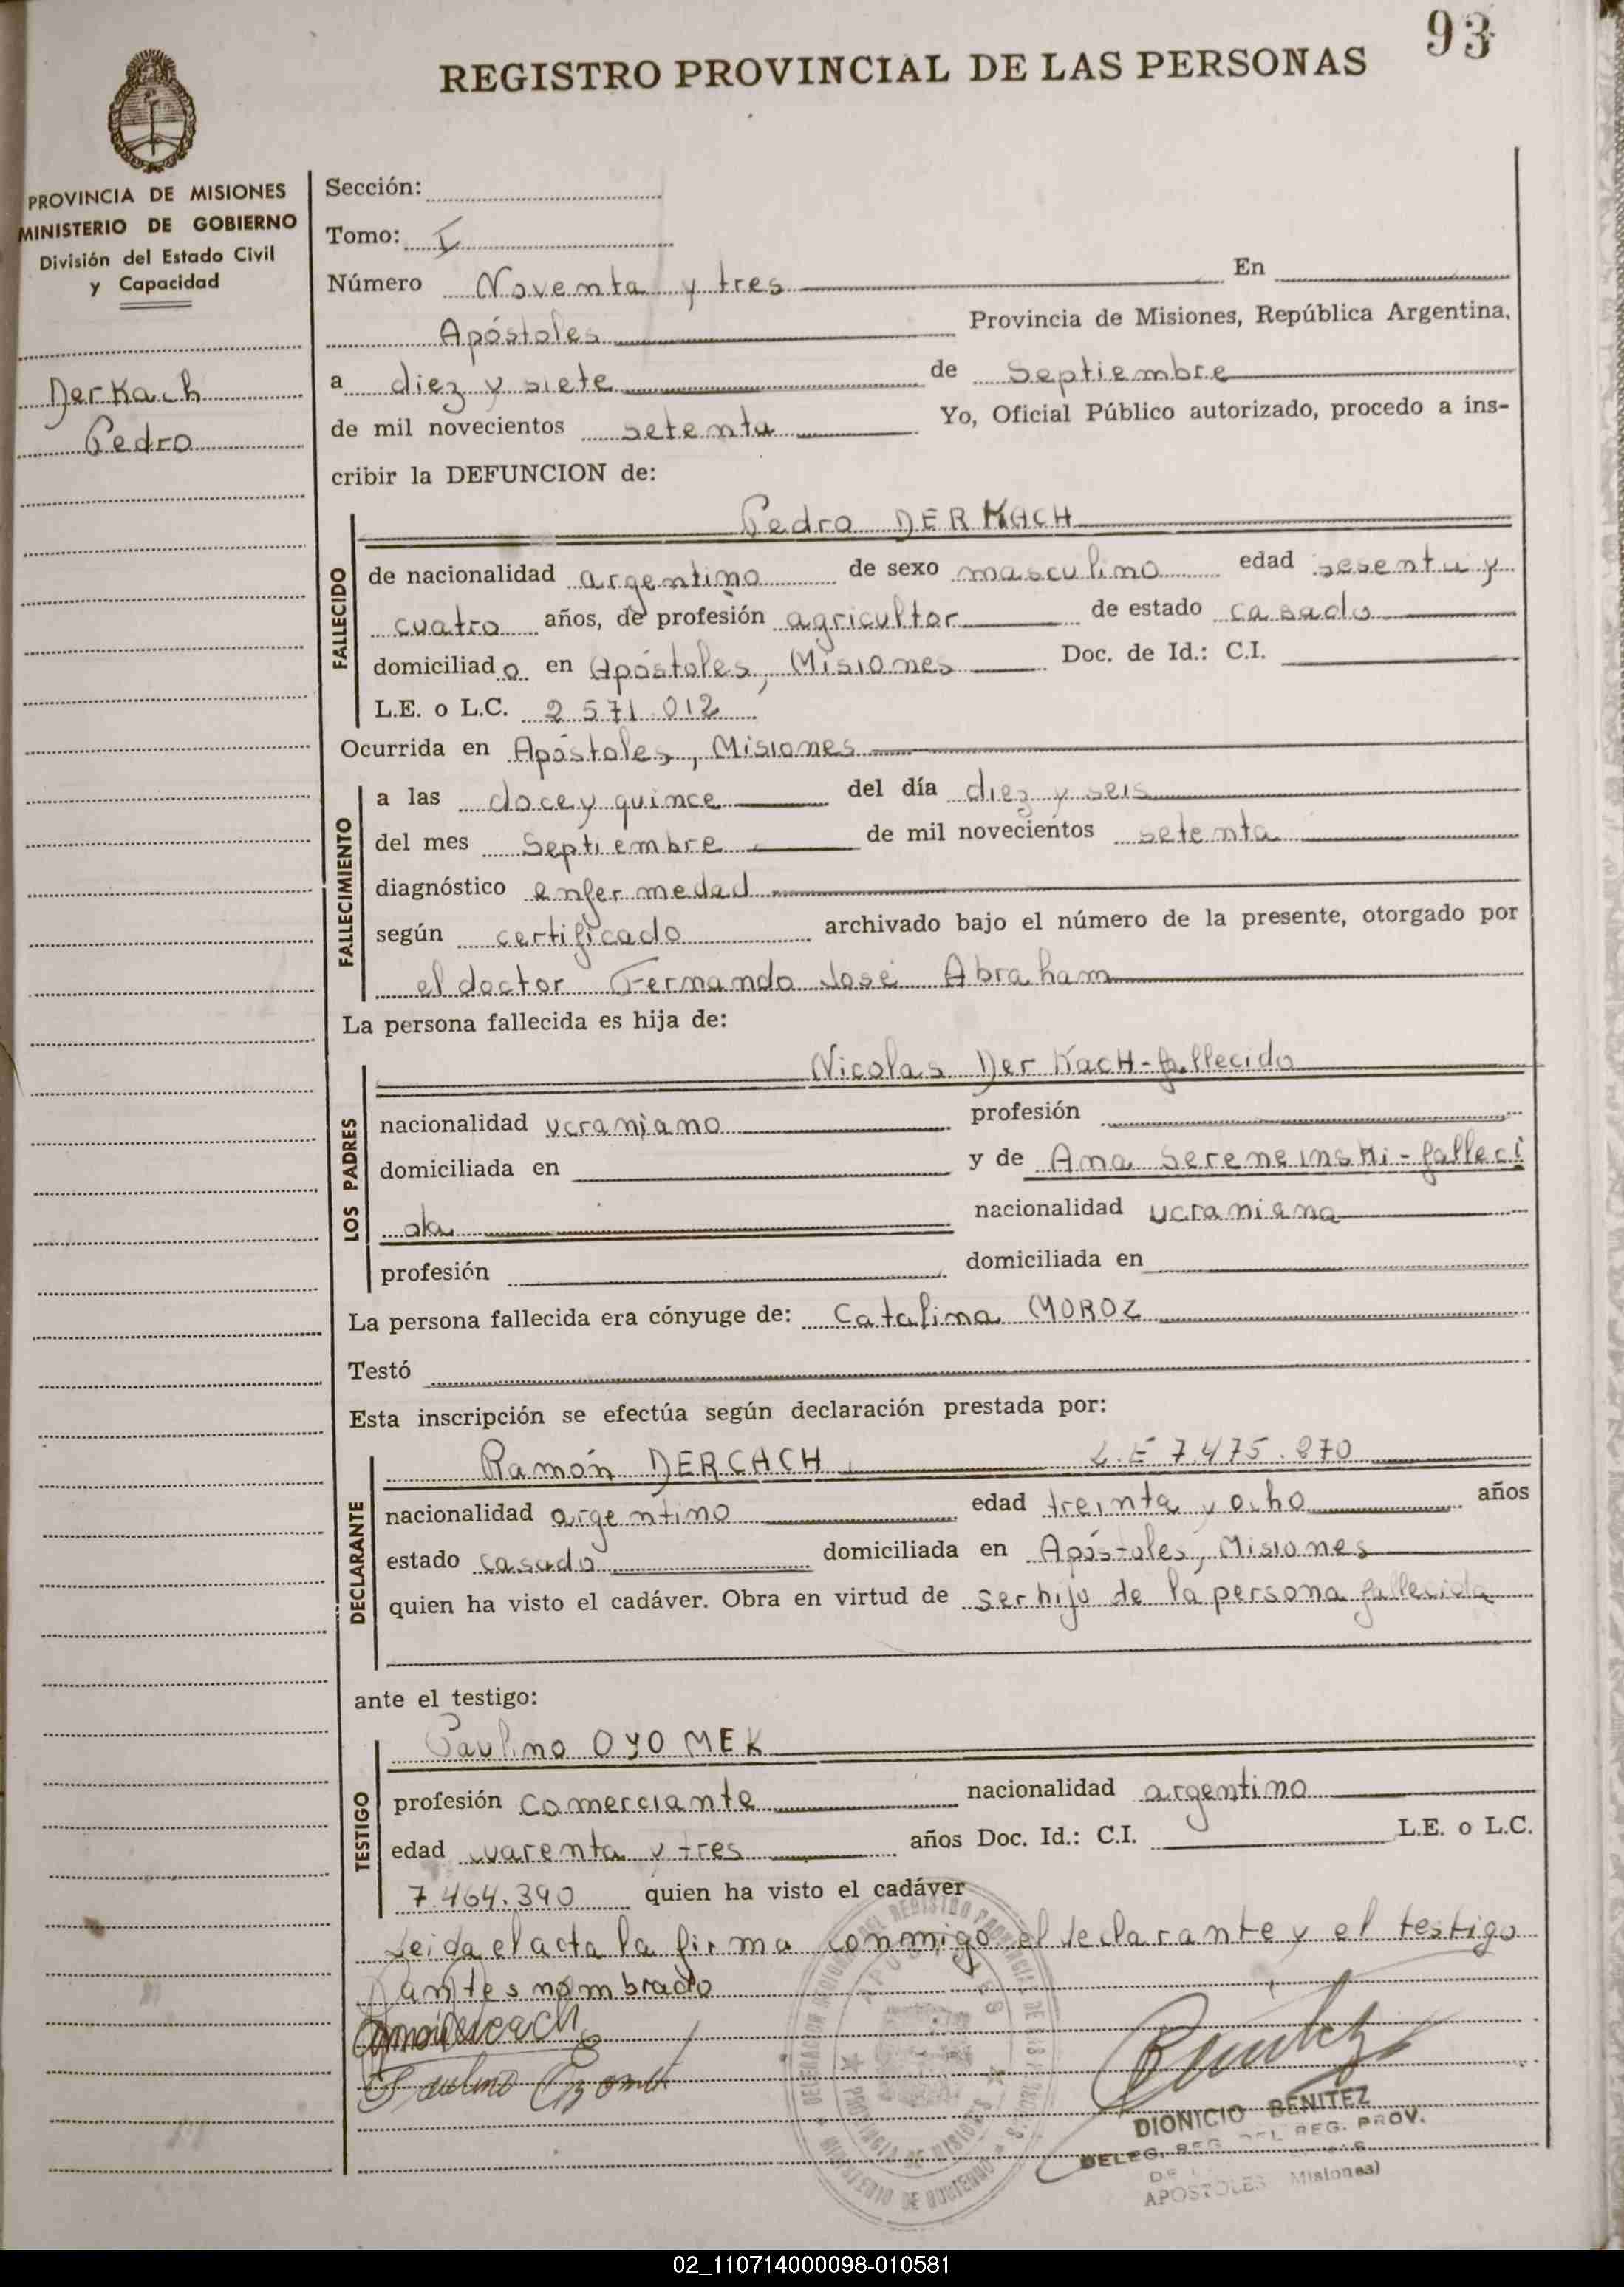 93
REGISTRO PROVINCIAL DE LAS PERSONAS
PROVINCIA DE MISIONES
MINISTERIO DE GOBIERNO
División del Estado Civil
y Capacidad
Derkach
Pedro
Sección:
Tomo: I
Número Noventa y tres En
Apóstoles Provincia de Misiones, República Argentina,
a diez y siete de Septiembre
de mil novecientos setenta Yo, Oficial Público autorizado, procedo a ins-
cribir la DEFUNCION de:
Pedro DERKACH
FALLECIDO
de nacionalidad argentino de sexo masculino edad sesenta y
cuatro años, de profesión agricultor de estado casado
domiciliado en Apóstoles, Misiones Doc. de Id.: C.I.
L.E. o L.C. 2 571.012
Ocurrida en Apóstoles, Misiones
FALLECIMIENTO
a las doce y quince del día diez y seis
del mes Septiembre de mil novecientos setenta
diagnóstico enfermedad
según certificado archivado bajo el número de la presente, otorgado por
el doctor Fernando José Abraham
La persona fallecida es hija de:
LOS PADRES
Nicolas DerKacH-fallecido
nacionalidad ucraniano profesión
domiciliada en y de Ana Sereneinski-falleci
da nacionalidad ucraniana
profesión domiciliada en
La persona fallecida era cónyuge de: Catalina MOROZ
Testó
Esta inscripción se efectúa según declaración prestada por:
DECLARANTE
Ramón DERCACH L.E 7.475.870
nacionalidad argentino edad treinta y ocho años
estado casado domiciliada en Apóstoles, Misiones
quien ha visto el cadáver. Obra en virtud de ser hijo de la persona fallecida
ante el testigo:
TESTIGO
Paulino OYOMEK
profesión comerciante nacionalidad argentino
edad cuarenta y tres años Doc. Id.: C.I. L.E. o L.C.
7.464.390 quien ha visto el cadáver
Leida el acta la firma conmigo el declarante y el testigo
antes nombrado
DIONICIO BENITEZ
DELEG. REG. DEL REG. PROV.
APOSTOLES Misiones)
02_110714000098-010581